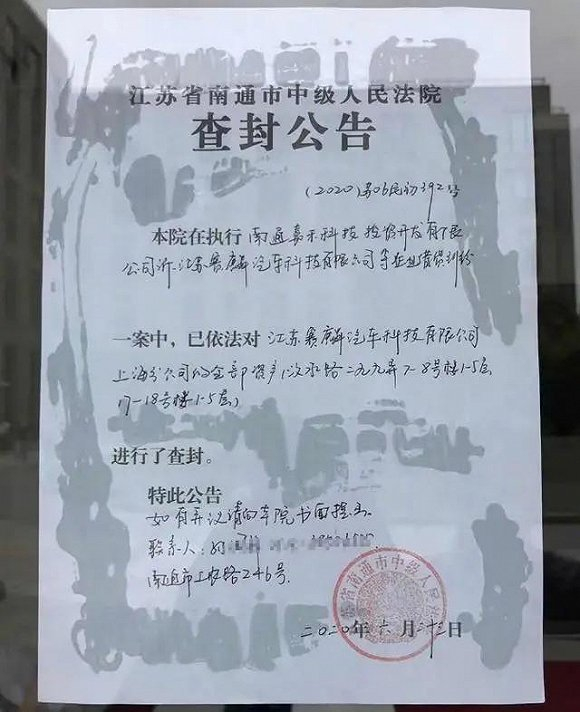 江苏省南通市中级人民法院
查封公告
(2020)苏06民初392号
本院在执行 南通嘉禾科技投资开发有限
公司诉江苏赛麟汽车科技有限公司等企业借贷纠纷
一案中，已依法对 江苏赛麟汽车科技有限公司
上海分公司的全部资产(汶水路二九九弄7-8号楼1-5层
17-18号楼1-5层)
进行了查封。
特此公告
如有异议请向本院书面提出
联系人:
南通市工农路246号.
江苏省南通市中级人民法院
二〇二〇年六月二十三日